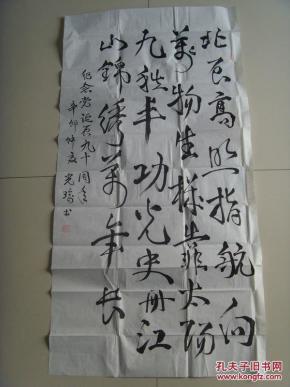 北辰高照指航向
萬物生靠太陽
九秩丰功光史册江
山錦绣萬年长
纪念党诞辰九十周年
辛卯仲夏光书
孔夫子旧书网
www.kongfz.com